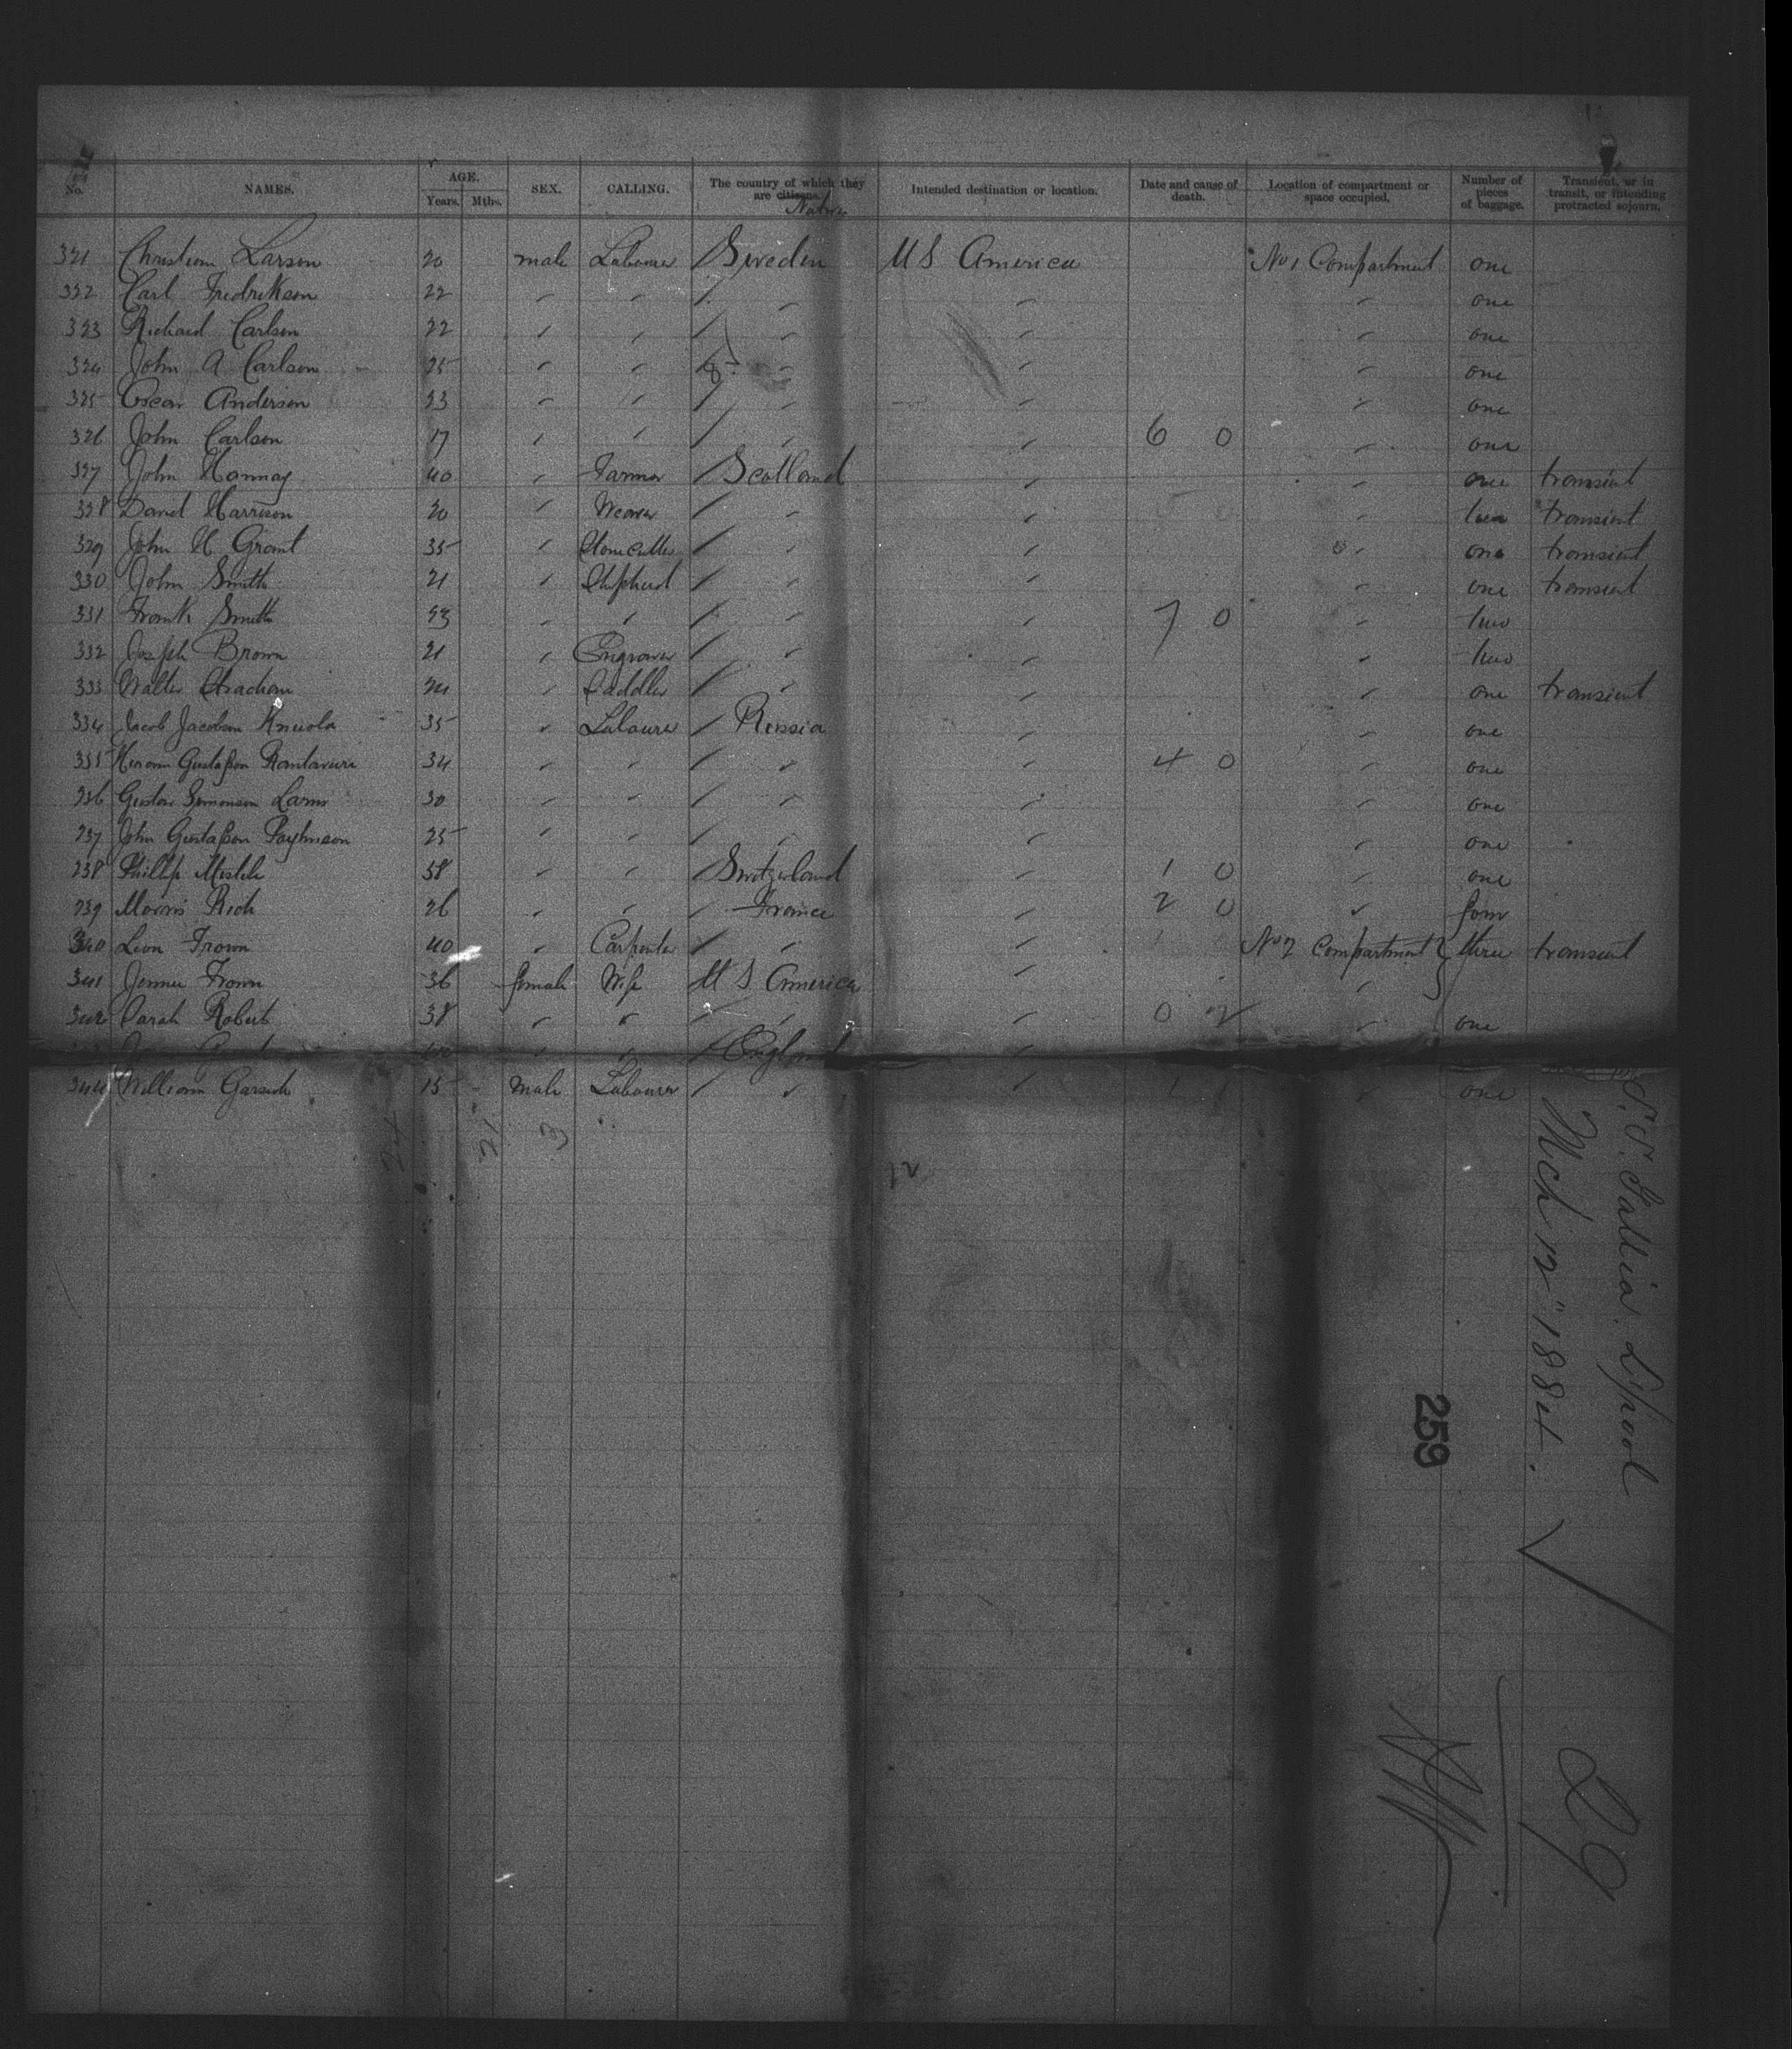 No. NAMES. AGE. SEX. CALLING. The country of which they are citizens. Intended destination or location. Date and cause of death. Location of compartment or space occupied. Number of pieces of baggage. Transient, or in transit, or intending protracted sojourn.
Years. Mths. Native
321 Christian Larson 20 male Labourer Sweden U S America No 1 Compartment one
322 Carl Fredrikson 22 " " " " " one
323 Richard Carlson 22 " " " " " one
324 John A Carlson 25 " " " " " one
325 Oscar Anderson 23 " " " " " one
326 John Carlson 17 " " " " 6 0 " one
327 John Hannay 40 " Farmer Scotland " " one transient
328 David Harrison 20 " Weaver " " " two transient
329 John H Grant 35 " Stonecutter " " " one transient
330 John Smith 21 " Shepherd " " " one transient
331 Frank Smith " " " " 7 0 " two
332 Joseph Brown 21 " Engraver " " " two
333 Walter Strachan 24 " Saddler " " " one transient
334 Jacob Jacobson 35 " Labourer Russia " " one
335 34 " " " " 4 0 " one
336 30 " " " " " one
337 John Gustafson 25 " " " " " one
338 Phillip 58 " " Switzerland " 1 0 " one
339 Morris Rich 26 " " France " 2 0 " four
340 Leon Frown 40 " Carpenter " " No 2 Compartment three transient
341 Jennie Frown 36 female Wife U S America " "
342 Sarah Robert 38 " " " " 0 2 " one
" " England "
344 William Garside 15 male Labourer " " " one
S.S. Gallia. L'pool
Mch 12" 1884.
259
29